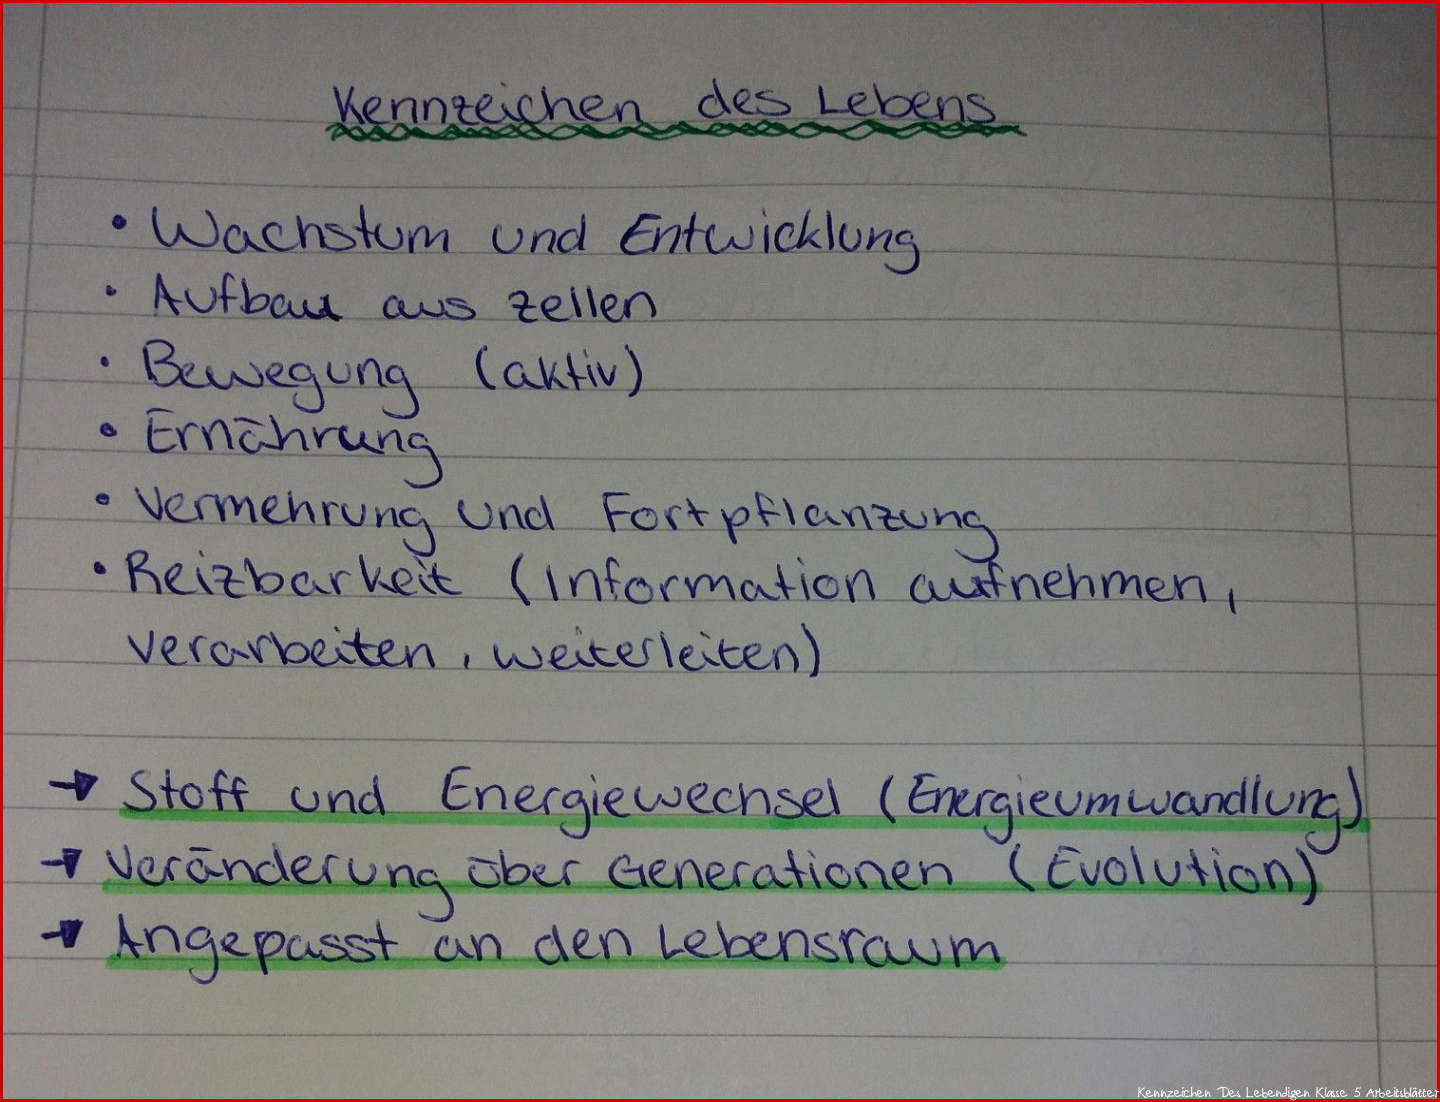 Kennzeichen des Lebens
• Wachstum und Entwicklung
• Aufbau aus zellen
• Bewegung (aktiv)
• Ernährung
• Vermehrung und Fortpflanzung
• Reizbarkeit (Information aufnehmen,
verarbeiten, weiterleiten)
→ Stoff und Energiewechsel (Energieumwandlung)
→ Veränderung über Generationen (Evolution)
→ Angepasst an den Lebensraum
Kennzeichen Des Lebendigen Klasse 5 Arbeitsblätter